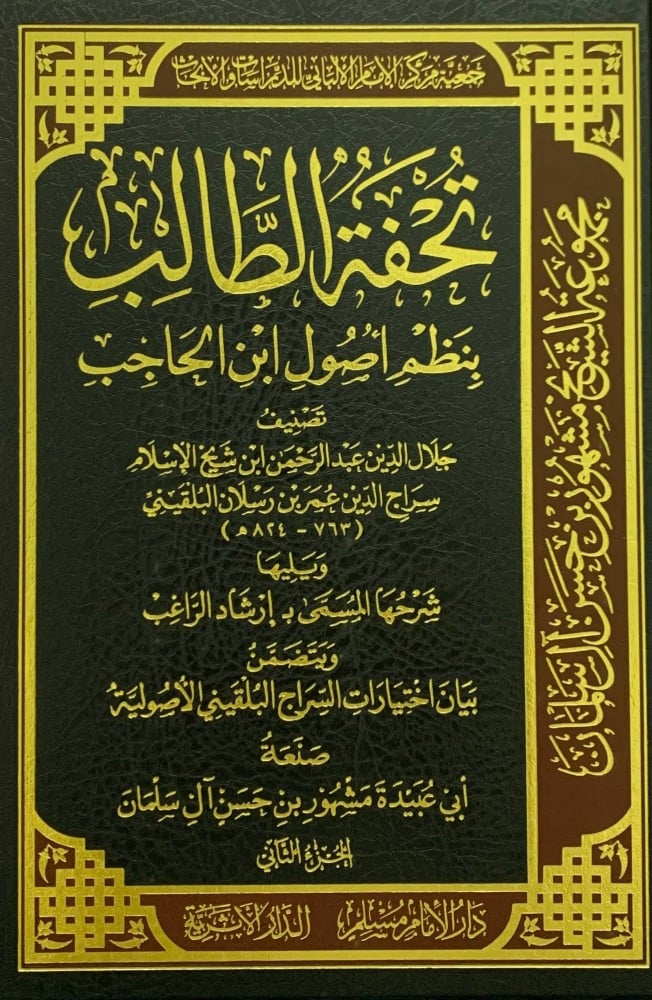 جمعية مركز الإمام الألباني للدراسات والأبحاث
تُحْفَةُ الطَّالِبِ
بِنَظْمِ أُصُولِ ابْنِ الحَاجِبِ
تَصْنِيفُ
جَلَال الدِّين عَبْد الرَّحْمَن ابْن شَيْخ الإِسْلَام
سِرَاج الدِّين عُمَر بْن رَسْلَان البُلْقِينيِّ
(٧٦٣ - ٨٢٤ هـ)
وَيَلِيهَا
شَرْحُهَا المُسَمَّى بـ إِرْشَاد الرَّاغِبْ
وَيَتَضَمَّنُ
بَيَانَ اخْتِيَارَاتِ السِّرَاجِ البُلْقِينِي الأُصُولِيَّةُ
صَنَعَةُ
أَبِي عُبَيْدَةَ مَشْهُور بِن حَسَنِ آلِ سَلْمَان
الجُزْءُ الثَّانِي
دَارُ الإِمَامِ مُسْلِم
الدَّارُ الأَثَرِيَّة
مجموعة الشيخ مشهور بن حسن آل سلمان